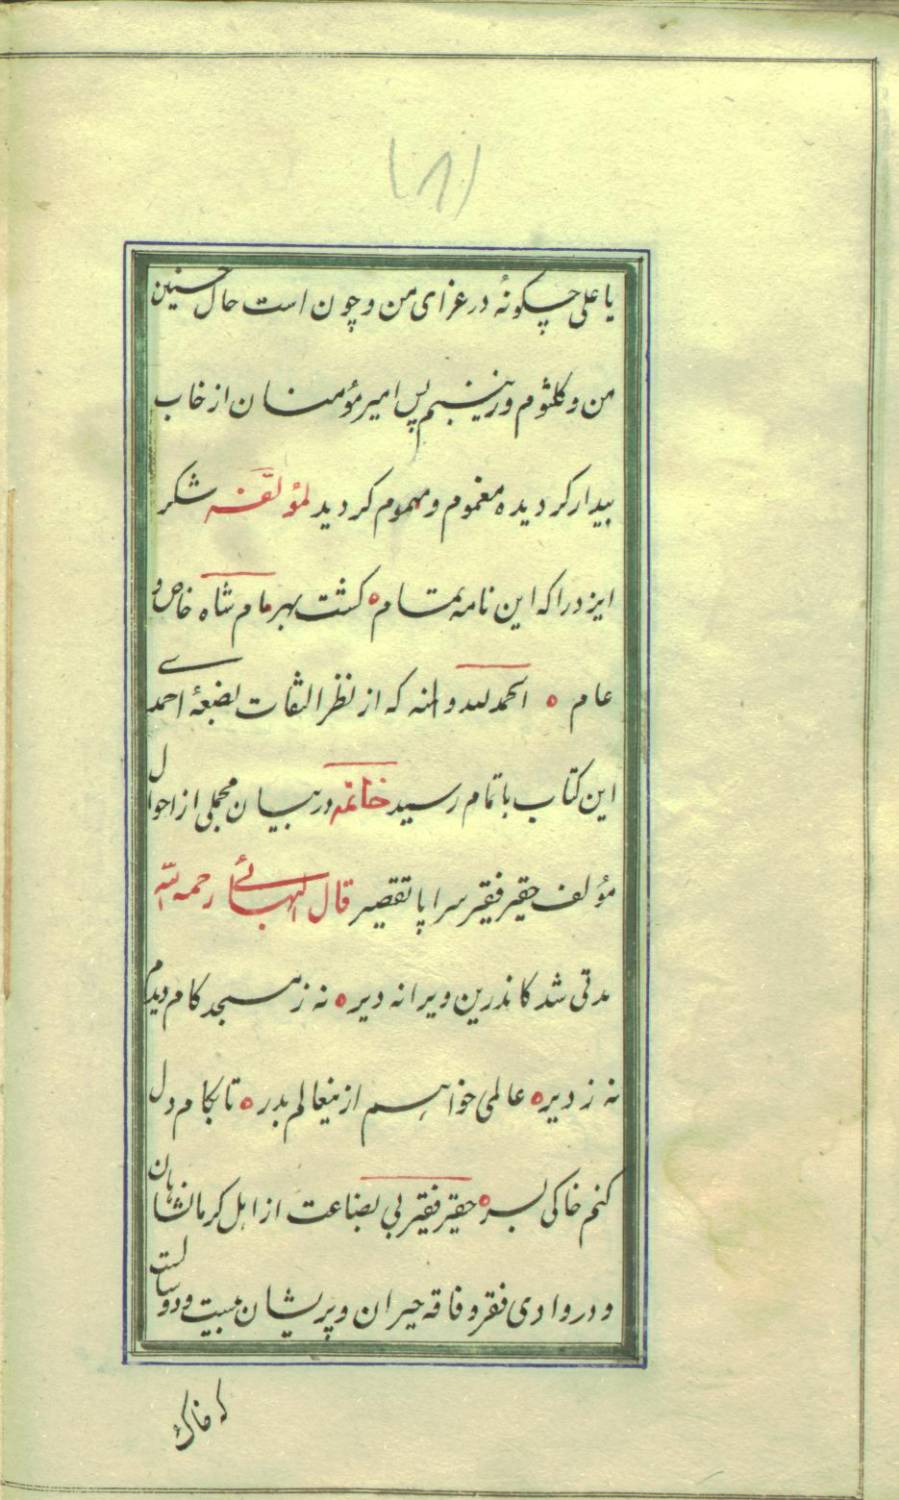 یا علی چکونهٔ در عزای من و چون است حال حسنین
من و کلثوم و زینبم پس امیر مؤمنان از خاب
بیدار کردیده مغموم و مهموم کردید لمؤلفه شکر
ایزد را که این نامه تمام ٥ کشت بهر مام شاه خاص و
عام ٥ الحمد لله والمنه که از نظر التفات بضعهٔ احمدی
این کتاب باتمام رسید خاتمه در بیان مجملی از احوال
مؤلف حقیر فقیر سراپا تقصیر قال البهائی رحمه الله
مدتی شد کاندرین ویرانه دیر ٥ نه ز مسجد کام دیدم
نه ز دیر ٥ عالمی خواهم از ینعالم بدر ٥ تا بکام دل
کنم خاکی بسر ٥ حقیر فقیر بی بضاعت از اهل کرمانشاهان
و در وادی فقر و فاقه حیران و پریشان بیست و دو سالست
که خاک